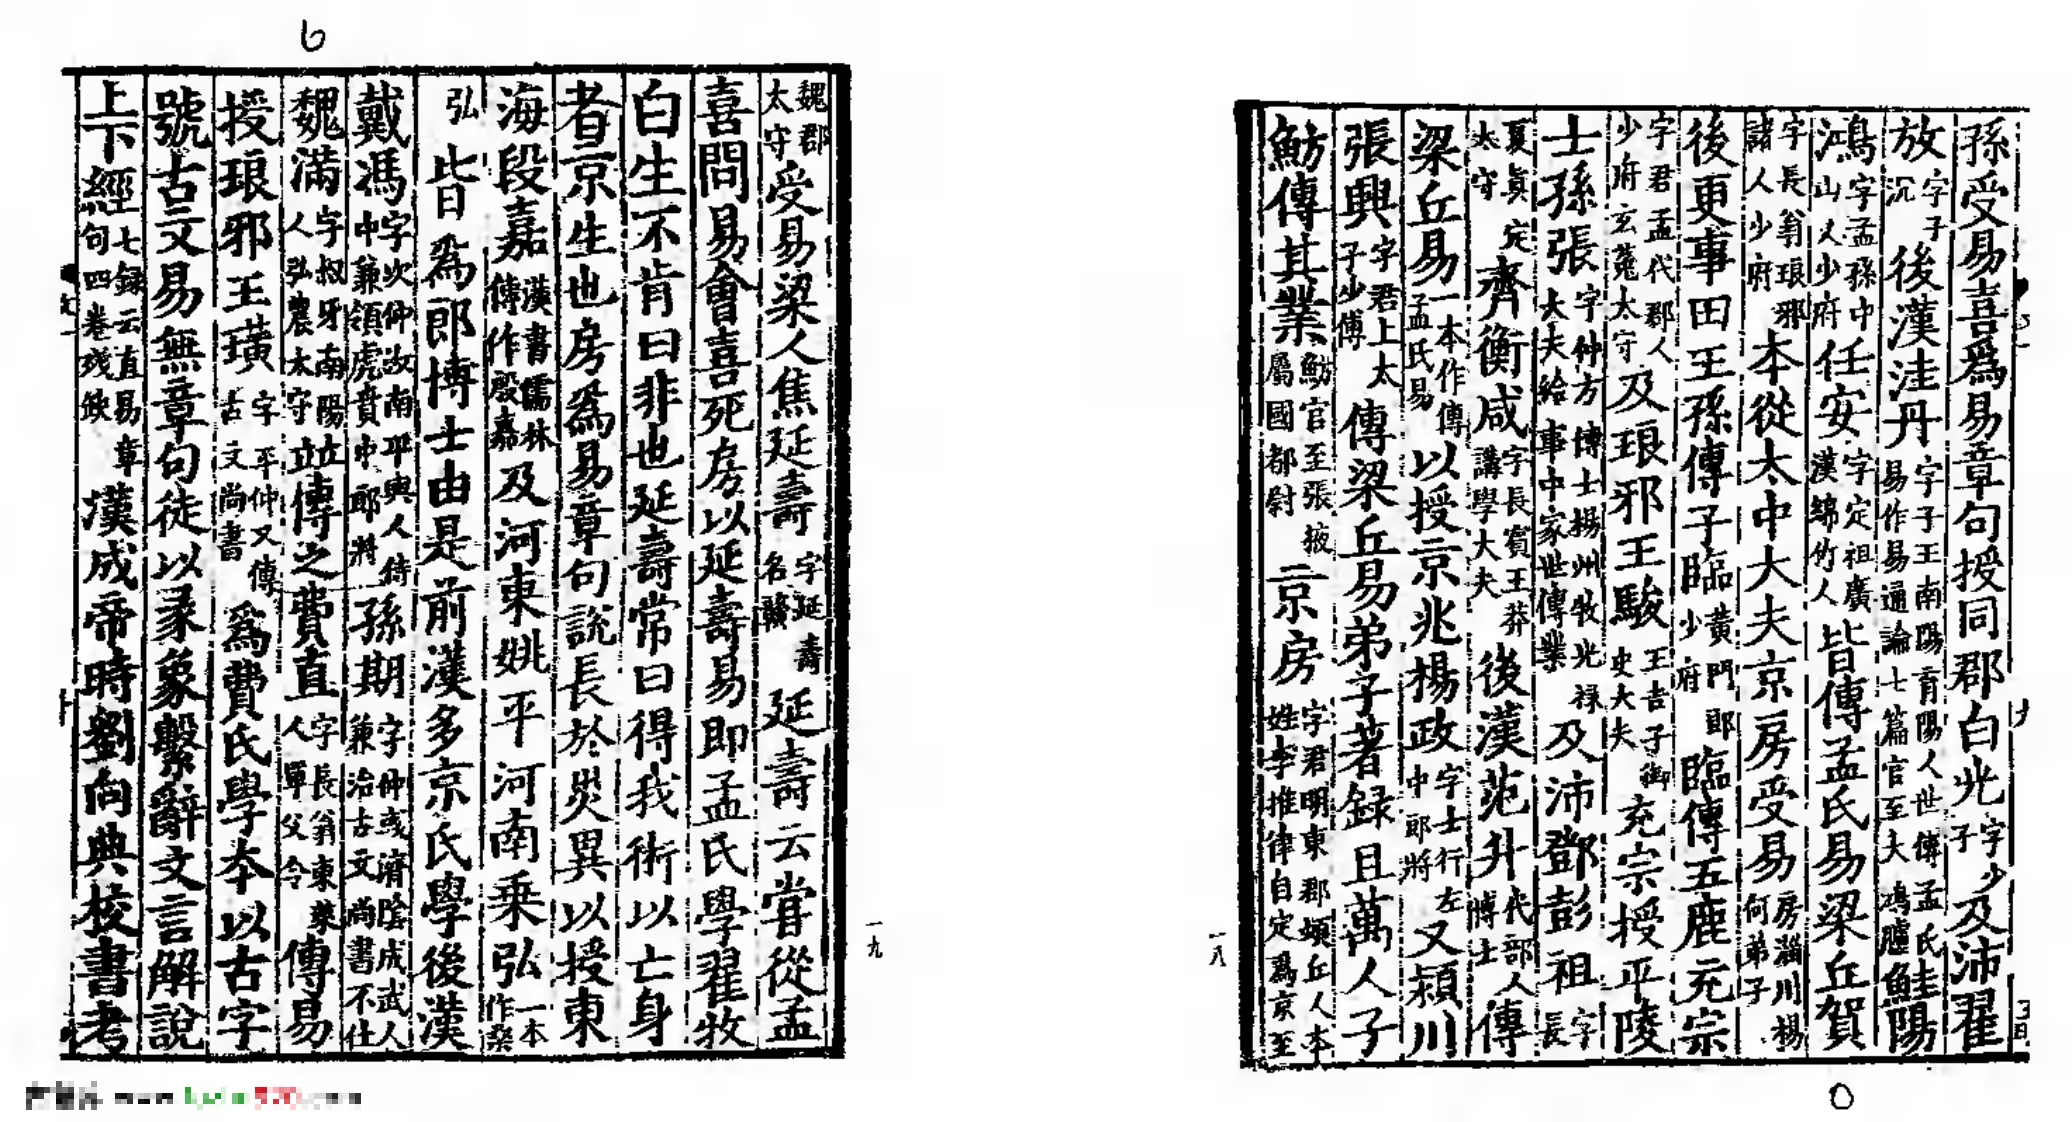 孫受易喜爲易章句授同郡白光字少子及沛翟
放字子沉後漢洼丹字子王南陽育陽人世傳孟氏易作易通論七篇官至大鴻臚鮭陽
鴻字孟孫中山人少府任安字定祖廣漢綿竹人皆傳孟氏易梁丘賀
字長翁琅邪諸人少府本從太中大夫京房受易房淄川楊何弟子
後更事田王孫傳子臨黃門郎少府臨傳五鹿充宗
字君孟代郡人少府玄菟太守及琅邪王駿王吉子御史大夫充宗授平陵
士孫張字仲方博士楊州牧光祿大夫給事中家世傳業及沛鄧彭祖字長
夏真定太守齊衡咸字長賓王莽講學大夫後漢范升代郡人博士傳
梁丘易一本作傳孟氏易以授京兆楊政字士行左中郎將又潁川
張興字君上太子少傅傳梁丘易弟子著錄且萬人子
魴傳其業魴官至張掖屬國都尉京房字君明東郡頓丘人本姓李推律自定爲京至
一八
魏郡太守受易梁人焦延壽字延壽名贛延壽云嘗從孟
喜問易會喜死房以延壽易即孟氏學翟牧
白生不肯曰非也延壽常曰得我術以亡身
者京生也房爲易章句說長於災異以授東
海段嘉漢書儒林傳作殷嘉及河東姚平河南乘弘一本作桑
弘皆爲郎博士由是前漢多京氏學後漢
戴馮字次仲汝南平輿人侍中兼領虎賁中郎將孫期字仲彧濟陰成武人兼治古文尚書不仕
魏滿字叔牙南陽人弘農太守竝傳之費直字長翁東萊人單父令傳易
授琅邪王璜字平仲又傳古文尚書爲費氏學本以古字
號古文易無章句徒以彖象繫辭文言解說
上下經七錄云直易章句四卷殘缺漢成帝時劉向典校書考
一九